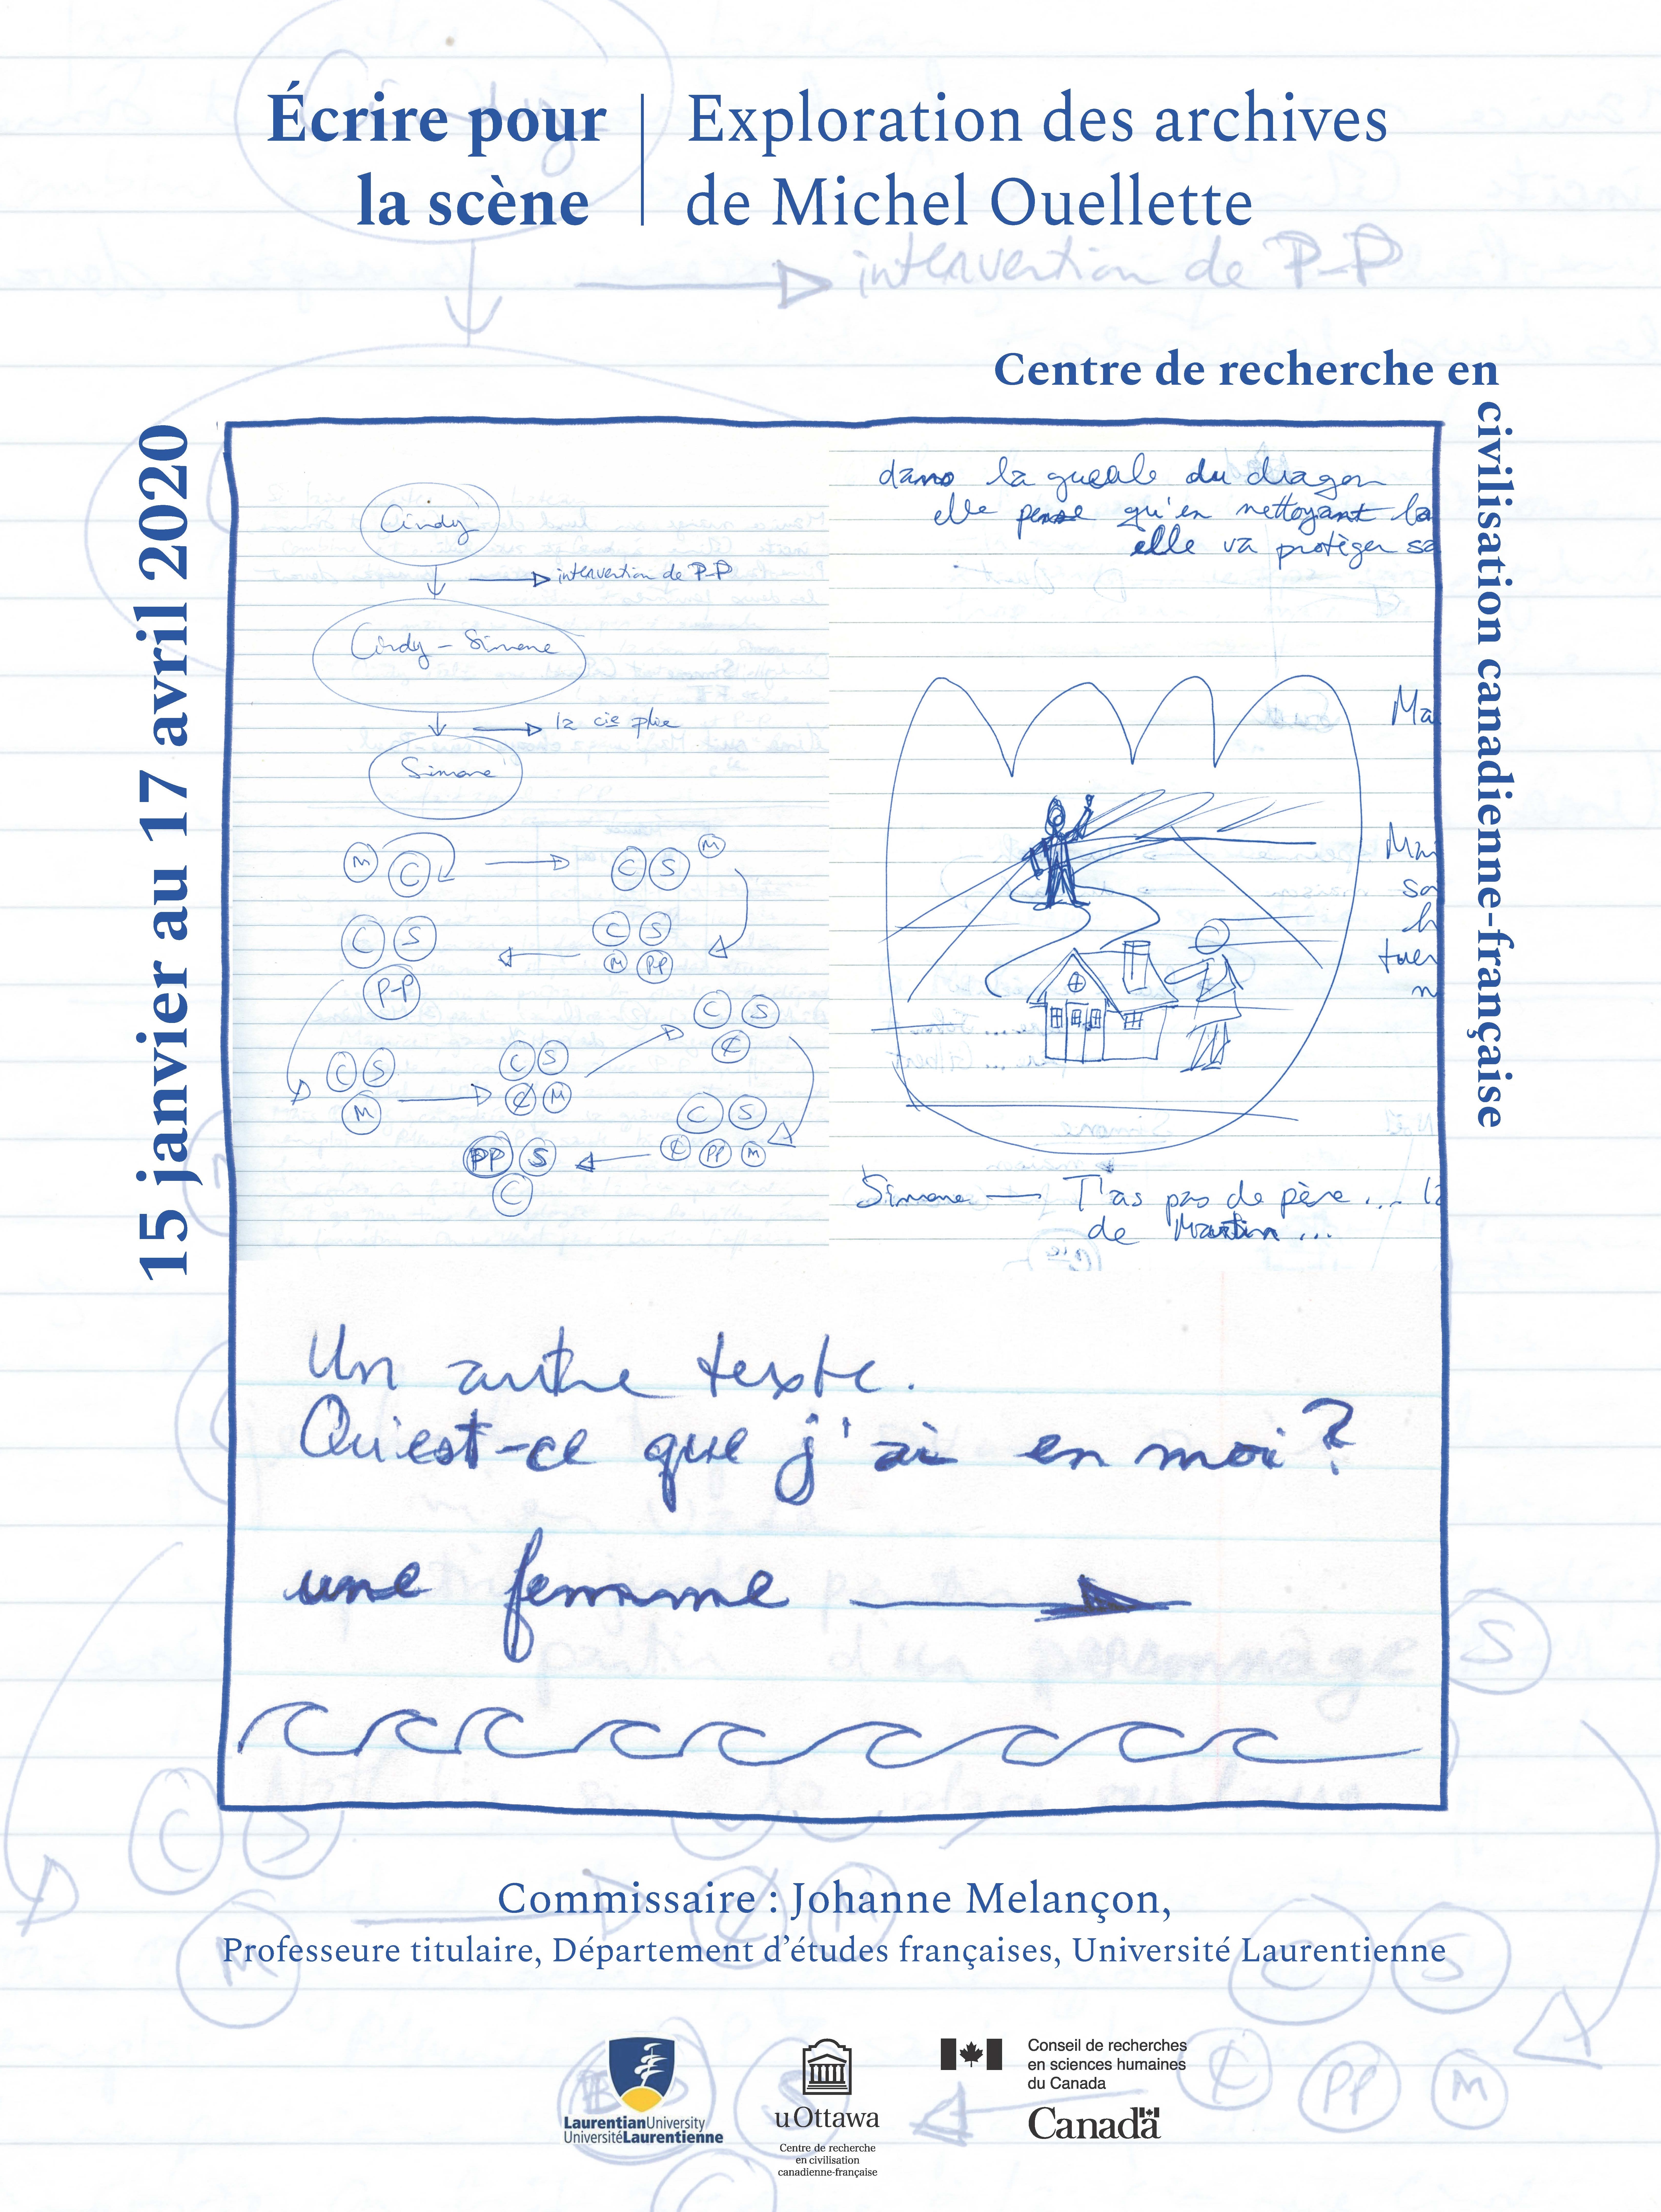 Écrire pour
la scène
Exploration des archives
de Michel Ouellette
intervention de P-P
Centre de recherche en
civilisation canadienne-française
15 janvier au 17 avril 2020
Cindy
intervention de P-P
Cindy - Simone
Simone
M C
C S M
C S
P-P
C S
M PP
C S
M
C S
₵ M
C S
₵
C S
₵ PP M
PP S
C
dans la gueule du dragon
elle pense qu'en nettoyant la
elle va protéger sa
Ma
Mai
so
h
tuer
n
Simone — T'as pas de père ... la
de Martin ...
Un autre texte.
Qu'est-ce que j'ai en moi?
une femme
partir d'un personnage
S
C S
M
C S
₵ PP M
Commissaire : Johanne Melançon,
Professeure titulaire, Département d'études françaises, Université Laurentienne
LaurentianUniversity
UniversitéLaurentienne
uOttawa
Centre de recherche
en civilisation
canadienne-française
Conseil de recherches
en sciences humaines
du Canada
Canada